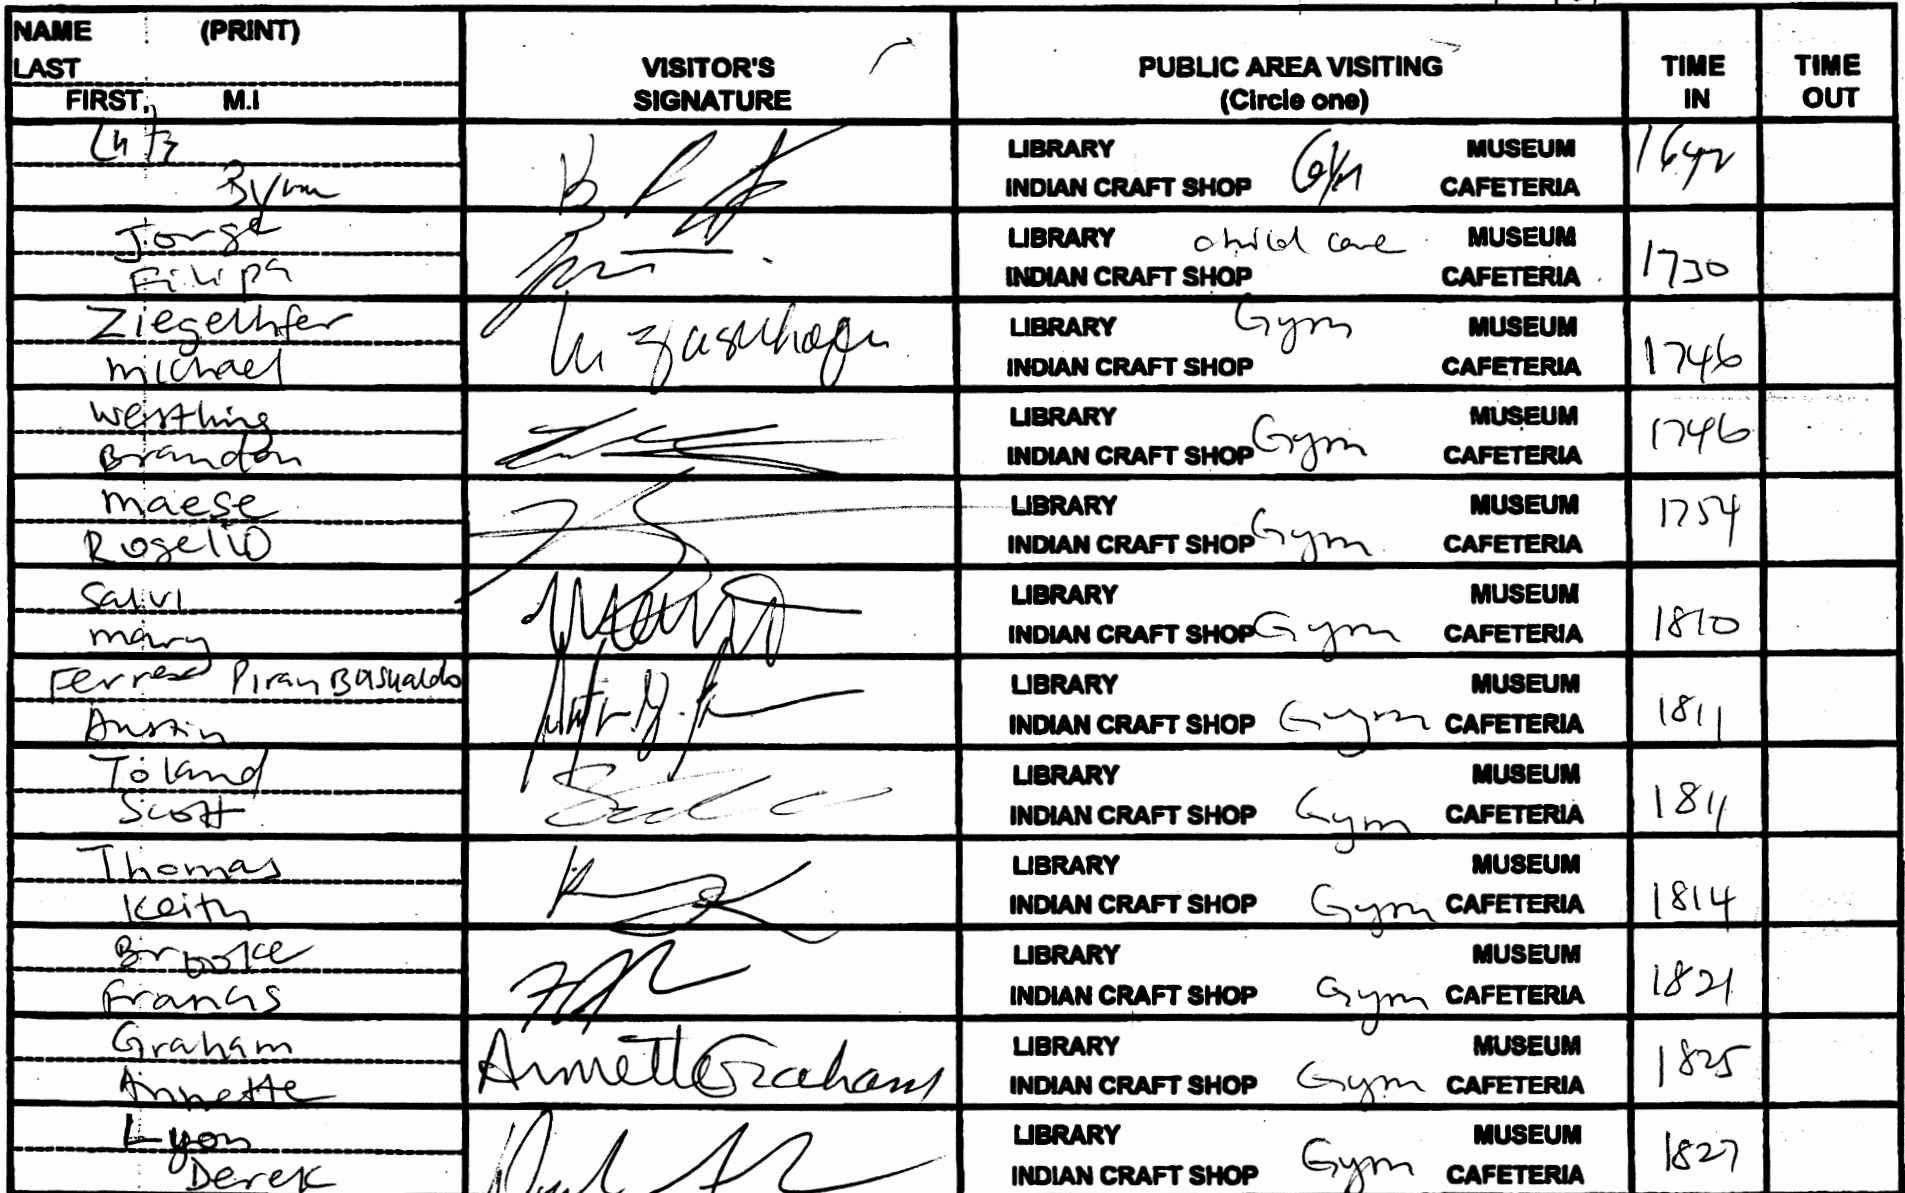 NAME (PRINT)
LAST
FIRST, M.I
VISITOR'S
SIGNATURE
PUBLIC AREA VISITING
(Circle one)
TIME
IN
TIME
OUT
Lutz
LIBRARY MUSEUM
INDIAN CRAFT SHOP Gym CAFETERIA
1642
Jorge
Filipa
LIBRARY child care MUSEUM
INDIAN CRAFT SHOP CAFETERIA
1730
Ziegelhfer
michael
LIBRARY Gym MUSEUM
INDIAN CRAFT SHOP CAFETERIA
1746
Westhing
Brandon
LIBRARY MUSEUM
INDIAN CRAFT SHOP Gym CAFETERIA
1746
maese
Rogelio
LIBRARY MUSEUM
INDIAN CRAFT SHOP Gym CAFETERIA
1754
Salvi
mary
LIBRARY MUSEUM
INDIAN CRAFT SHOP Gym CAFETERIA
1810
Piran Basualdo
Austin
LIBRARY MUSEUM
INDIAN CRAFT SHOP Gym CAFETERIA
1811
Toland
Scott
LIBRARY MUSEUM
INDIAN CRAFT SHOP Gym CAFETERIA
1811
Thomas
Keith
LIBRARY MUSEUM
INDIAN CRAFT SHOP Gym CAFETERIA
1814
Brooke
Francis
LIBRARY MUSEUM
INDIAN CRAFT SHOP Gym CAFETERIA
1821
Graham
Annette
Annette Graham
LIBRARY MUSEUM
INDIAN CRAFT SHOP Gym CAFETERIA
1825
Lyon
Derek
LIBRARY MUSEUM
INDIAN CRAFT SHOP Gym CAFETERIA
1827